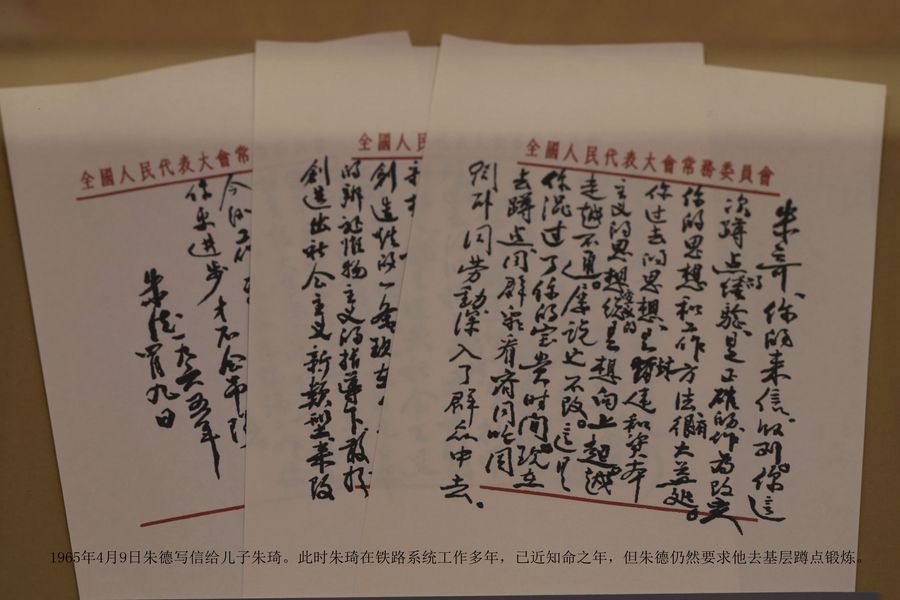 全國人民代表大會常務委員會
朱奇：你的来信收到。你这
次蹲点的经验是正确的，作为改变
你的思想和工作方法有很大益处。
你过去的思想是封建和资本
主义的思想，总是想向上起，越
走越不通。屡说也不改。这是
你混过了你的宝贵时间。现在
去蹲点同群众同吃同
同劳动深入了群众中去。
全國人民
创造性的一条
的辩证唯物主义的指导下敢于
创造出社会主义新类型来改
全國人民代表大會常
今的工作
你更进步才不会
朱德一九六五年
四月九日
1965年4月9日朱德写信给儿子朱琦。此时朱琦在铁路系统工作多年，已近知命之年，但朱德仍然要求他去基层蹲点锻炼。